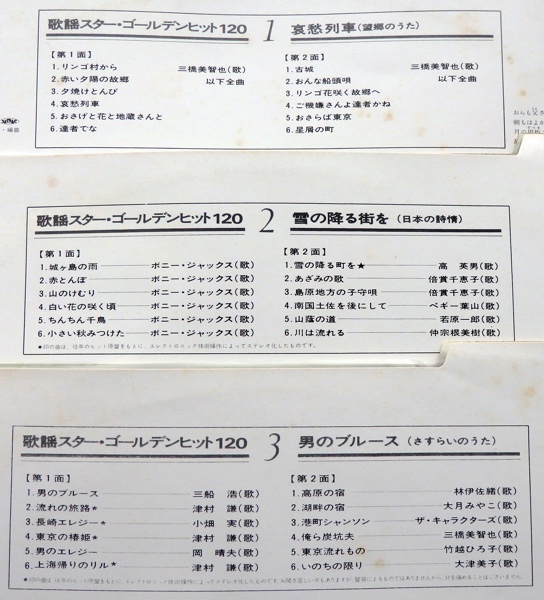 歌謡スター・ゴールデンヒット120 1 哀愁列車(望郷のうた)
【第1面】
1.リンゴ村から 三橋美智也(歌)
2.赤い夕陽の故郷 以下全曲
3.夕焼けとんび
4.哀愁列車
5.おさげと花と地蔵さんと
6.達者でな
【第2面】
1.古城 三橋美智也(歌)
2.おんな船頭唄 以下全曲
3.リンゴ花咲く故郷へ
4.ご機嫌さんよ達者かね
5.おさらば東京
6.星屑の町
歌謡スター・ゴールデンヒット120 2 雪の降る街を(日本の詩情)
【第1面】
1.城ヶ島の雨 ボニー・ジャックス(歌)
2.赤とんぼ ボニー・ジャックス(歌)
3.山のけむり ボニー・ジャックス(歌)
4.白い花の咲く頃 ボニー・ジャックス(歌)
5.ちんちん千鳥 ボニー・ジャックス(歌)
6.小さい秋みつけた ボニー・ジャックス(歌)
【第2面】
1.雪の降る町を★ 高 英男(歌)
2.あざみの歌 倍賞千恵子(歌)
3.島原地方の子守唄 倍賞千恵子(歌)
4.南国土佐を後にして ペギー葉山(歌)
5.山蔭の道 若原一郎(歌)
6.川は流れる 仲宗根美樹(歌)
★印の曲は、往年のヒット原盤をもとに、エレクトロニック技術操作によってステレオ化したものです。
歌謡スター・ゴールデンヒット120 3 男のブルース(さすらいのうた)
【第1面】
1.男のブルース 三船 浩(歌)
2.流れの旅路★ 津村 謙(歌)
3.長崎エレジー★ 小畑 実(歌)
4.東京の椿姫★ 津村 謙(歌)
5.男のエレジー 岡 晴夫(歌)
6.上海帰りのリル★ 津村 謙(歌)
【第2面】
1.高原の宿 林伊佐緒(歌)
2.湖畔の宿 大月みやこ(歌)
3.港町シャンソン ザ・キャラクターズ(歌)
4.俺ら炭坑夫 三橋美智也(歌)
5.東京流れもの 竹越ひろ子(歌)
6.いのちの限り 大津美子(歌)
★印の曲は、往年のヒット原盤をもとに、エレクトロニック技術操作によってステレオ化したものです。